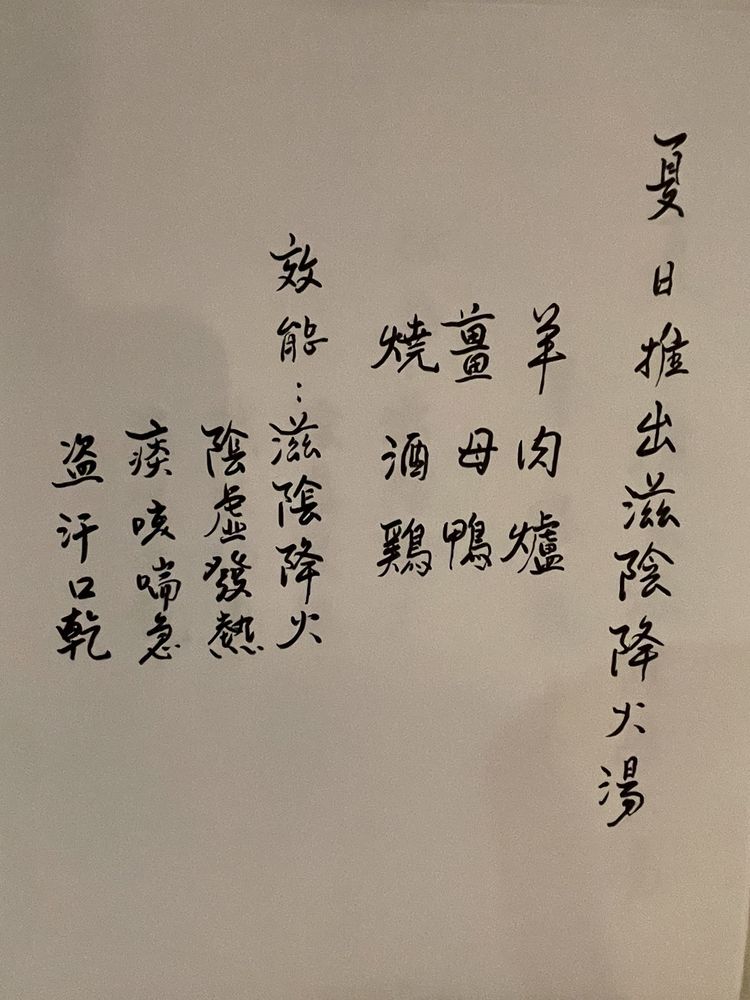 夏日推出滋陰降火湯
羊肉爐
薑母鴨
燒酒鷄
效能：滋陰降火
陰虛發熱
痰咳喘急
盜汗口乾